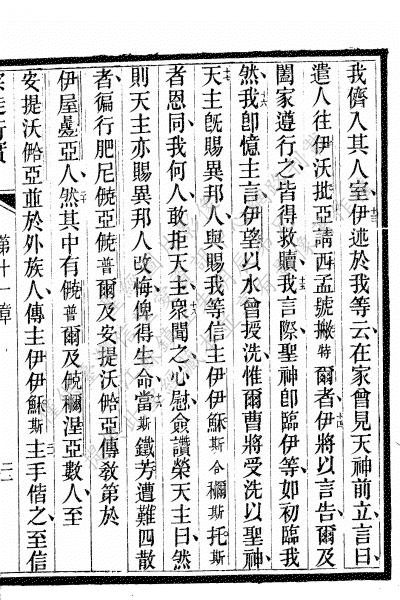 我儕入其人室伊述於我等云在家曾見天神前立言曰
遣人往伊沃批亞請西孟號撇特爾者伊將以言告爾及
闔家遵行之皆得救贖我言際聖神卽臨伊等如初臨我
然我卽憶主言伊望以水曾授洗惟爾曹將受洗聖神
天主旣賜異邦人與賜我等信主伊伊穌斯合穪斯托斯
者恩同我何人敢拒天主衆聞之心慰僉讚榮天主曰然
則天主亦賜異邦人改悔俾得生命當斯鐵芳遭難四散
者徧行肥尼亞普爾及安提沃亞傳敎第於
伊屋亞人然其中有普爾及穪涅亞數人至
安提沃亞並於外族人傳主伊伊穌斯主手偕之至信
行實
第十一章
二